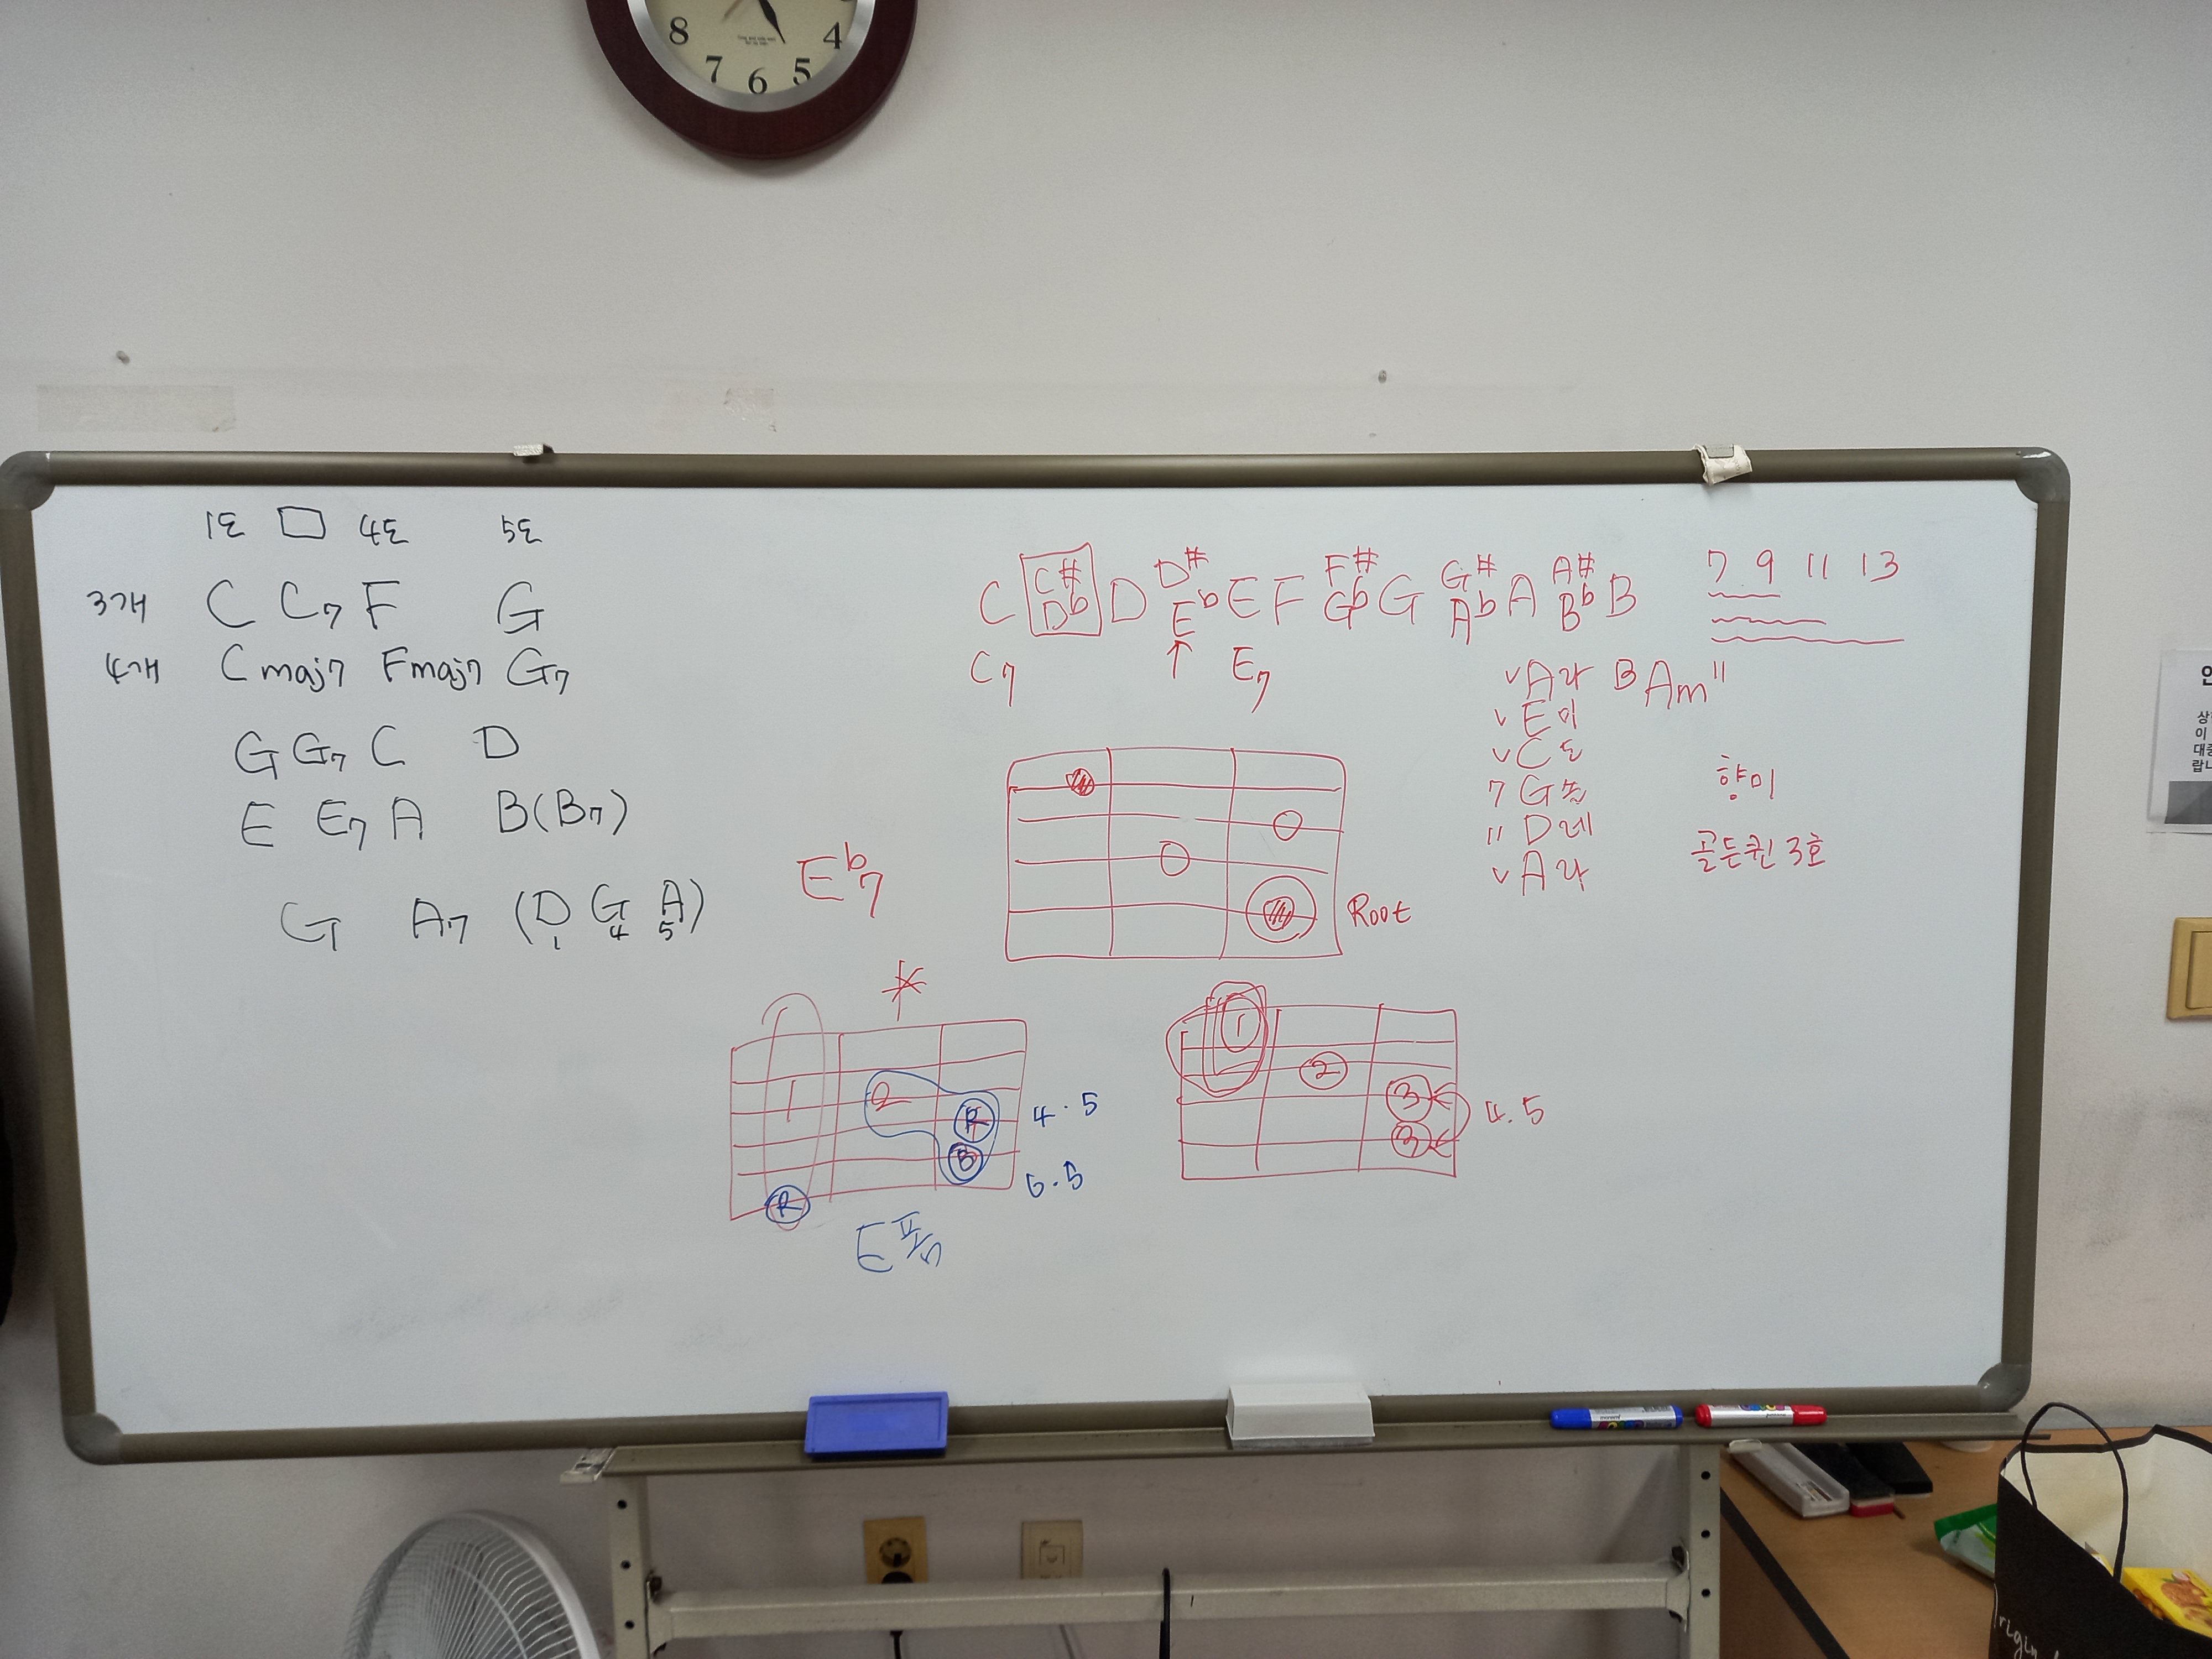 8 7 6 5 4
1도 □ 4도 5도
3개 C C7 F G
4개 Cmaj7 Fmaj7 G7
G G7 C D
E E7 A B(B7)
G A7 (D G A)
1 4 5
C# D# F# G# A#
C Db D Eb E F Gb G Ab A Bb B
↑
C7 E7
7 9 11 13
∨ A라 B Am11
∨ E미
∨ C도
7 G솔
" D레
∨ A라
향미
골든퀸 3호
Eb7
Root
*
1 2 R
B
R
4·5
6·5
E폼
1
2
3
3
4.5
안
상
이
대중
랍니